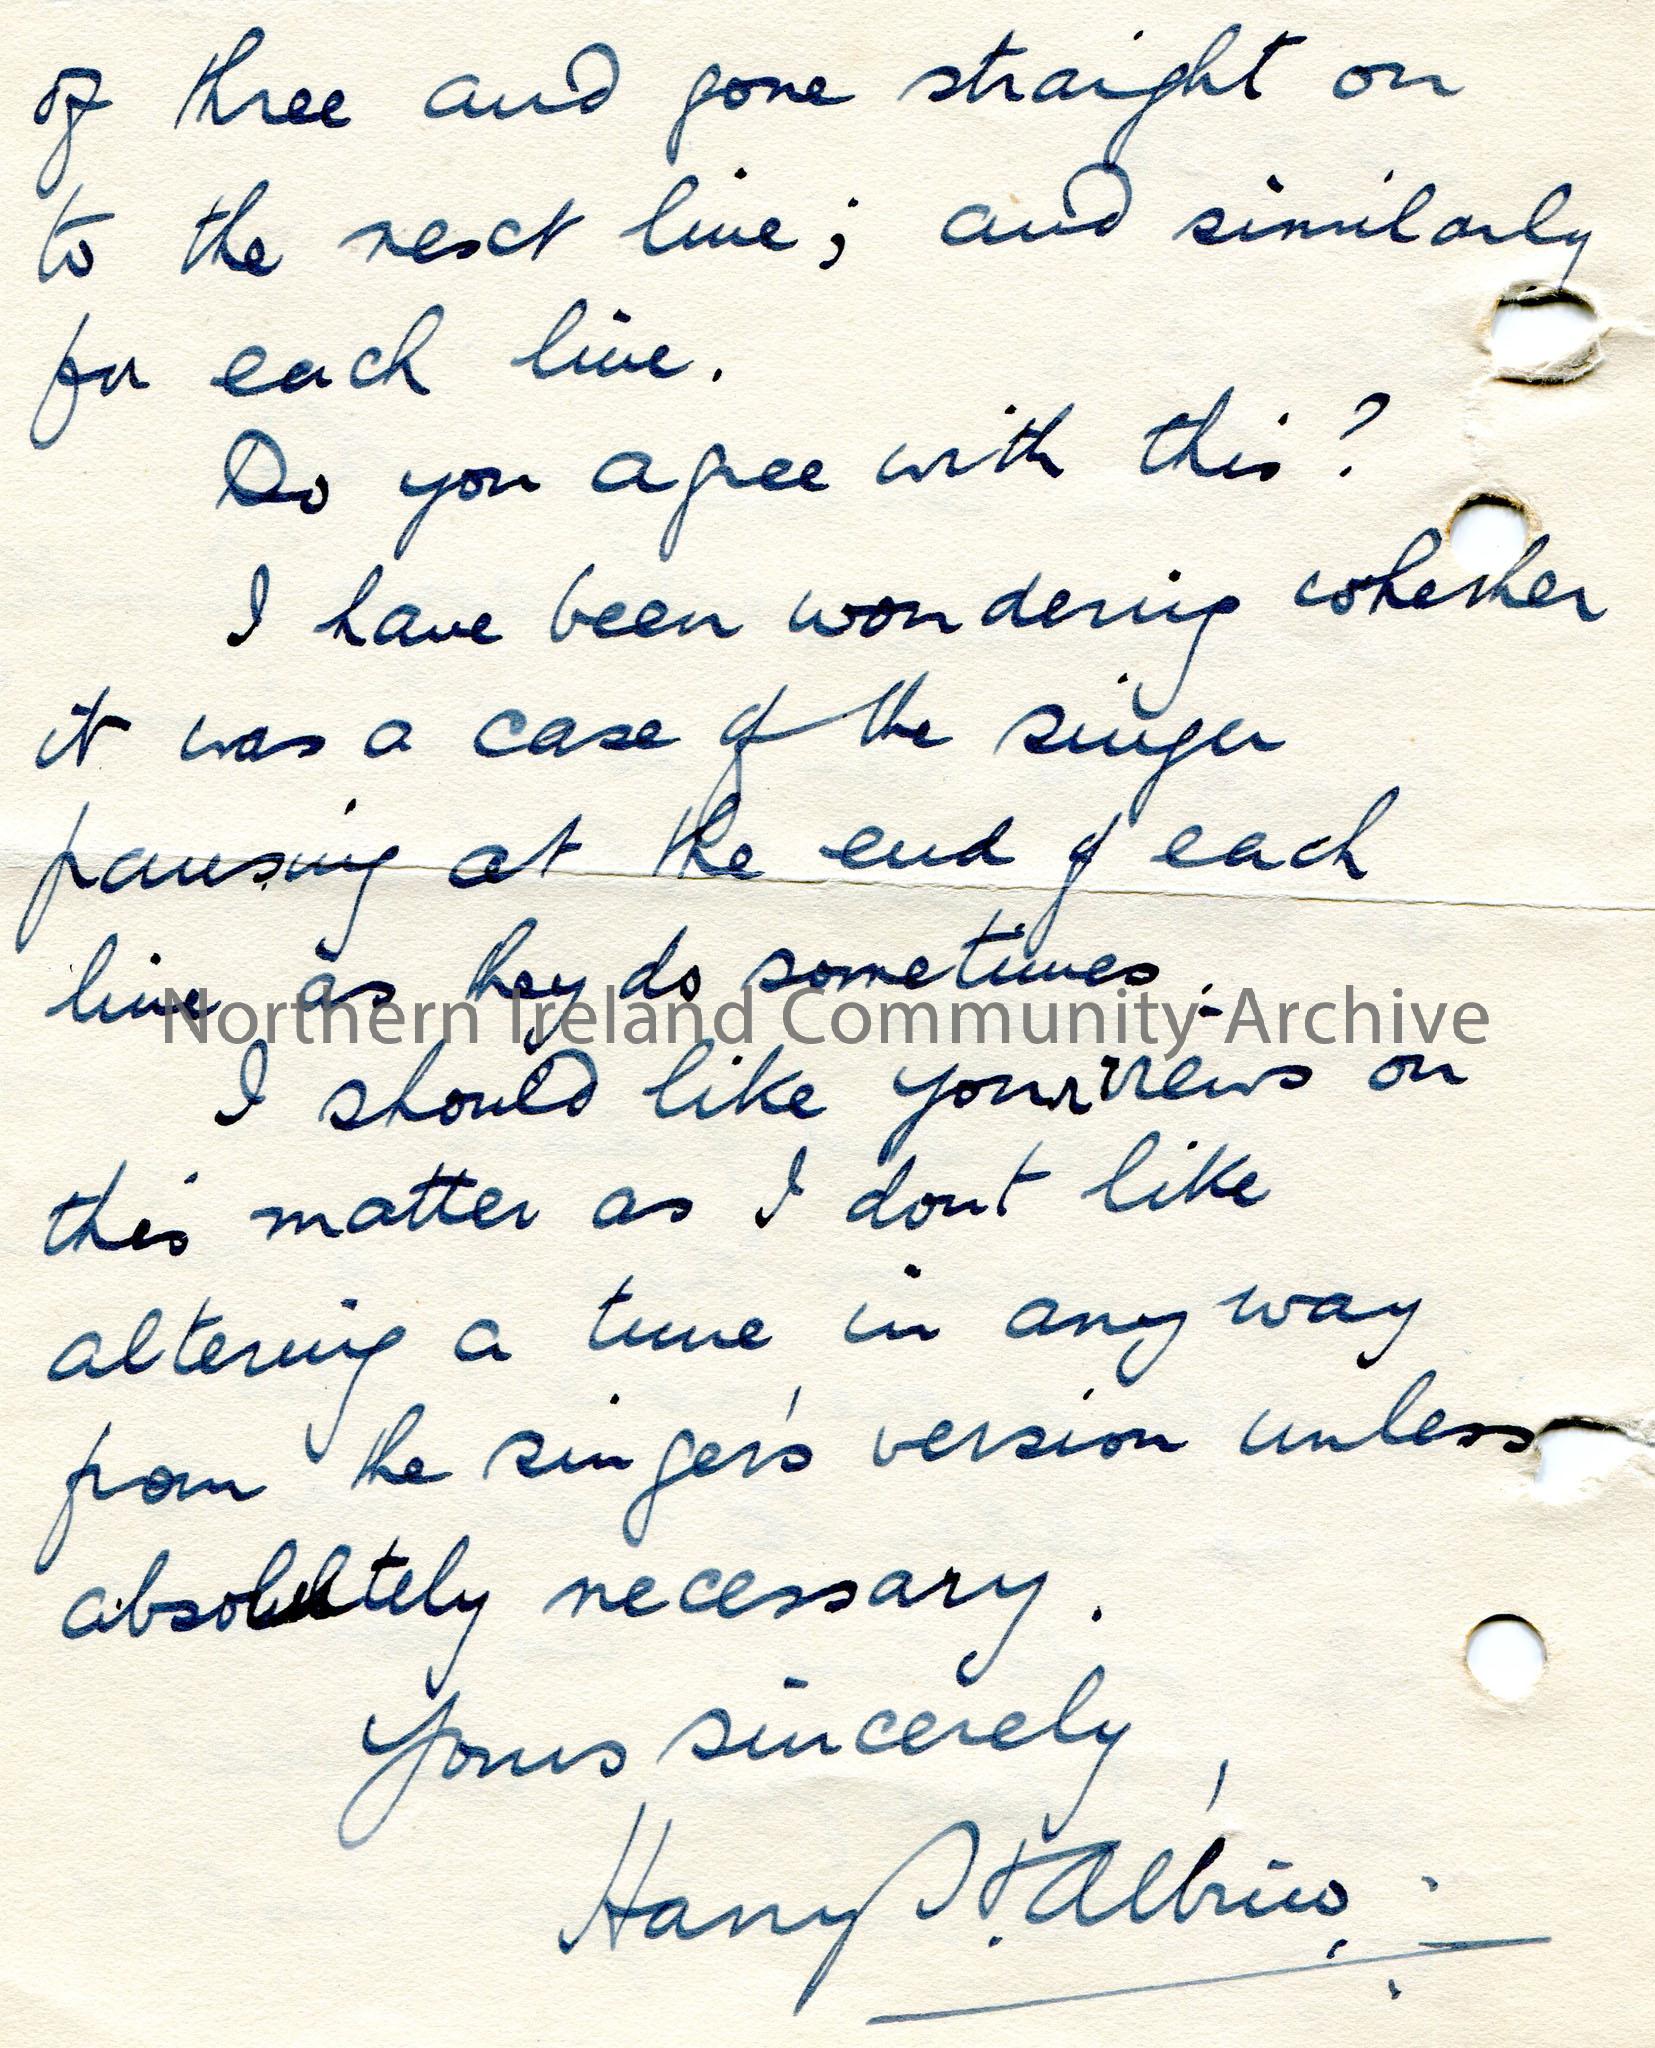 of three and gone straight on
to the next line; and similarly
for each line.
Do you agree with this?
I have been wondering whether
it was a case of the singer
pausing at the end of each
line as they do sometimes.
Northern Ireland Community Archive
I should like your views on
this matter as I dont like
altering a tune in any way
from the singer's version unless
absolutely necessary.
Yours sincerely,
Harry St. Albino.